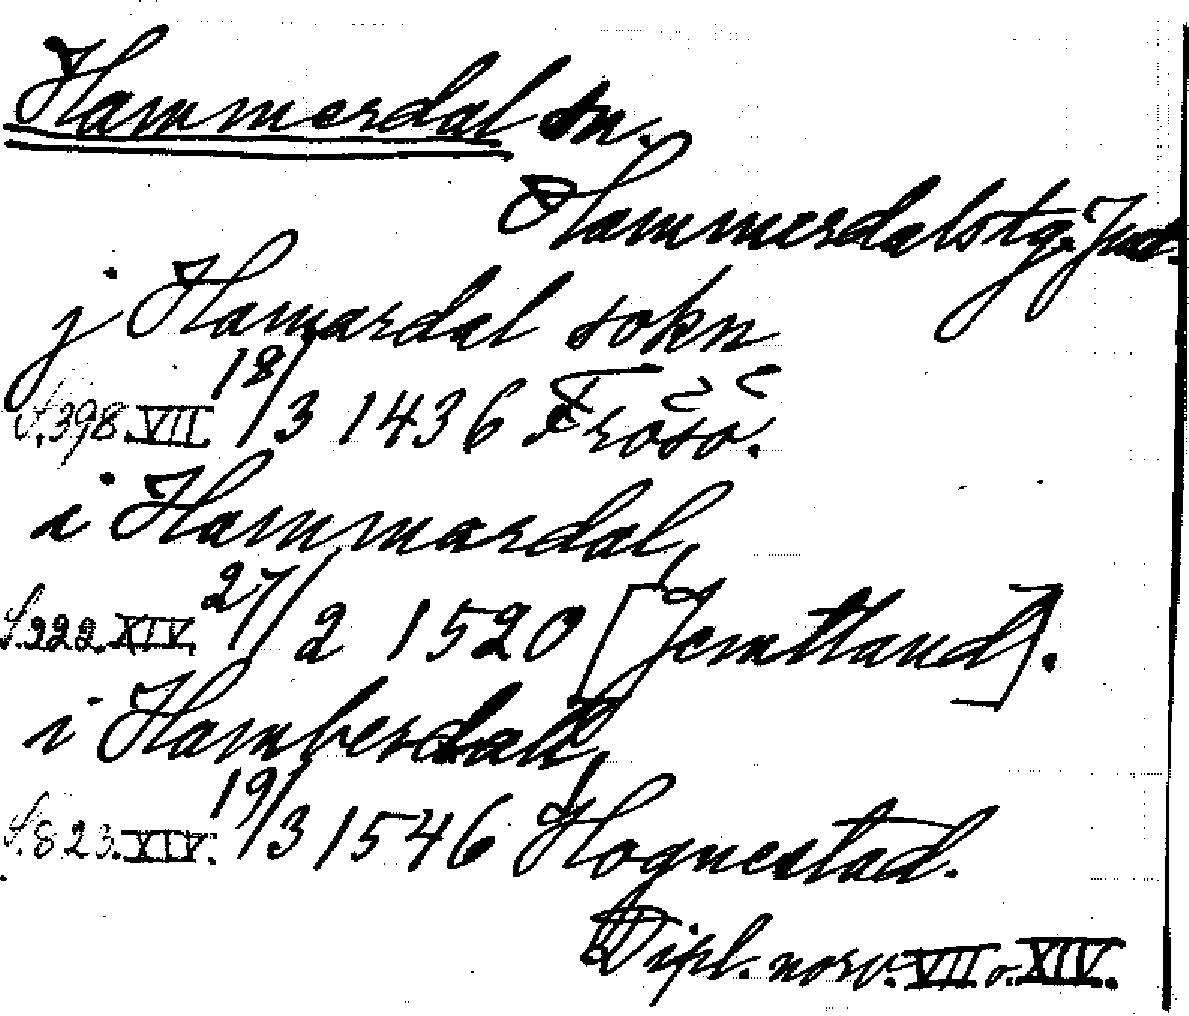 Hammerdal sn.
Hammerdals tg. Jmt.
j Hamardal sokn
S. 398. VII. 18/3 1436 Frösö.
i Hammardal,
S. 222. XIV. 27/2 1520 [Jemtland].
i Hamberdall,
S. 823. XIV. 19/3 1546 Hognestad.
Dipl. norv. VII o. XIV.